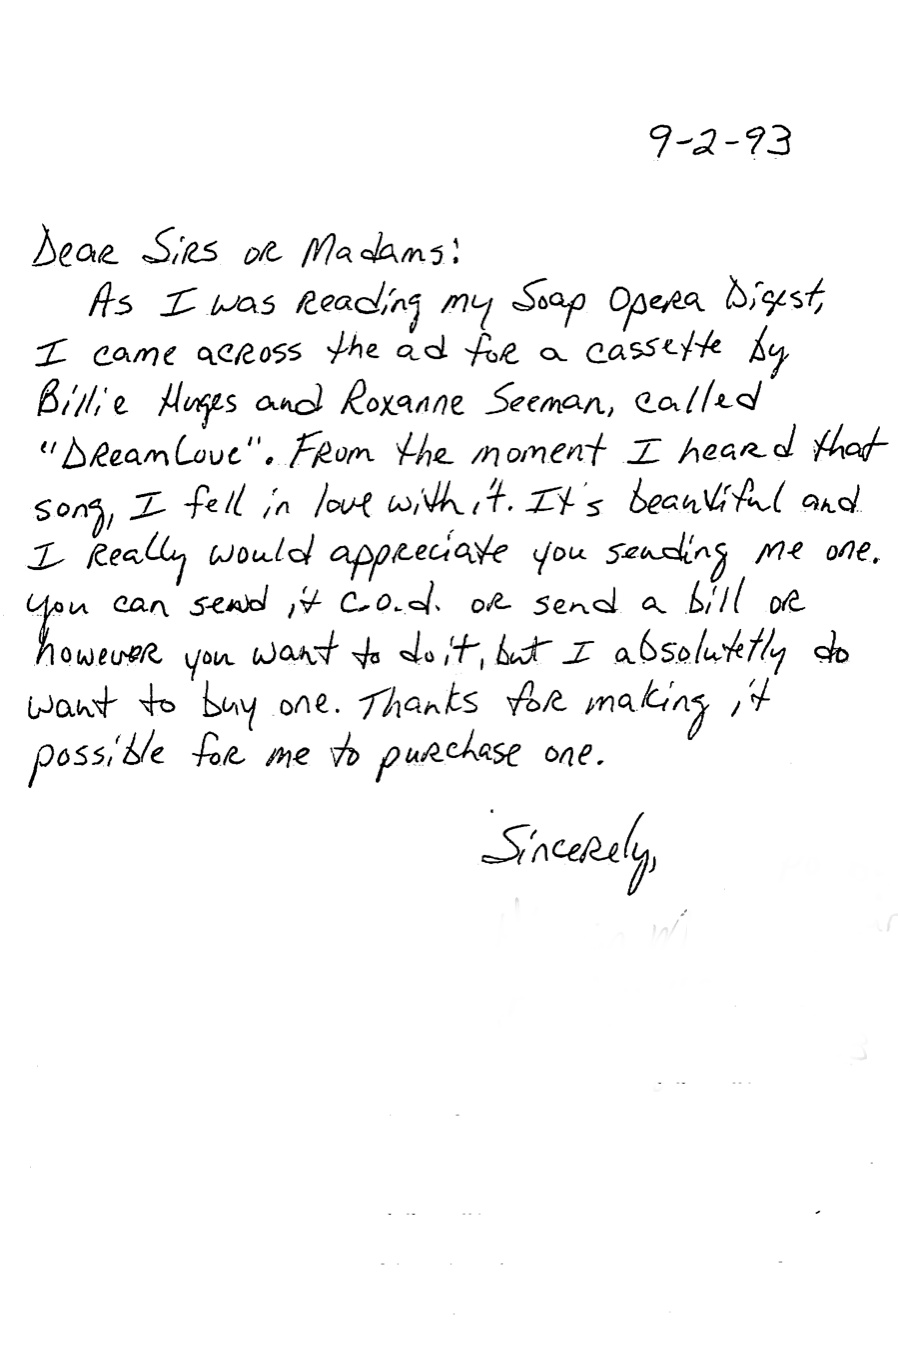 9-2-93
Dear Sirs or Madams:
As I was reading my Soap Opera Digest,
I came across the ad for a cassette by
Billie Huges and Roxanne Seeman, called
"DreamLove". From the moment I heard that
song, I fell in love with it. It's beautiful and
I really would appreciate you sending me one.
You can send it C.O.D. or send a bill or
however you want to do it, but I absolutetly do
want to buy one. Thanks for making it
possible for me to purchase one.
Sincerely,